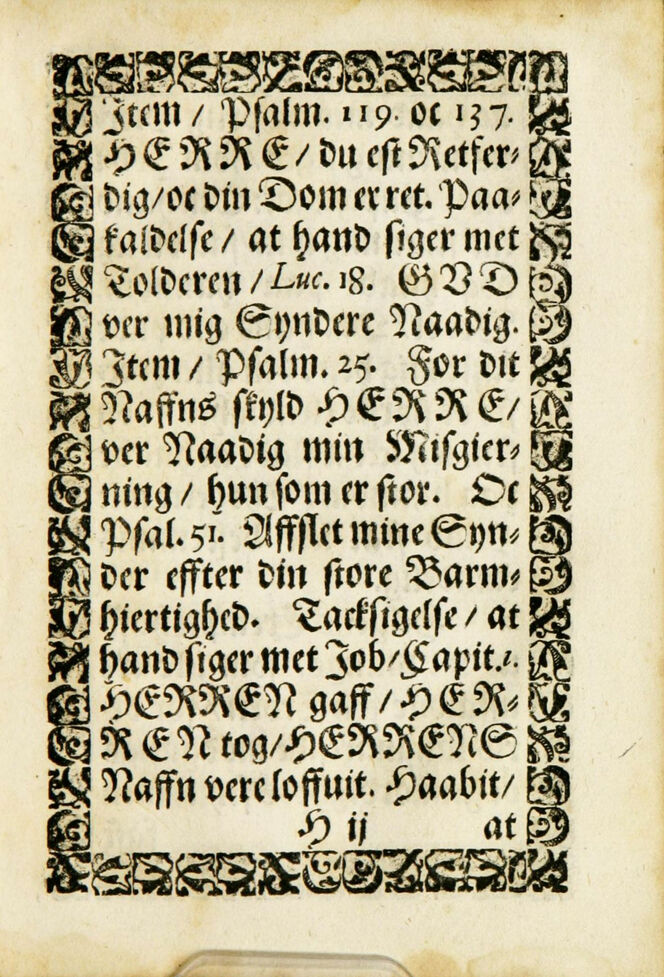 Item / Psalm. 119. oc 137.
HERRE / du est Retfer⸗
dig / oc din Dom er ret. Paa⸗
kaldelse / at hand siger met
Tolderen / Luc. 18. GVD
ver mig Syndere Naadig.
Item / Psalm. 25. For dit
Naffns skyld HERRE /
ver Naadig min Misgier⸗
ning / hun som er stor. Oc
Psal. 51. Affslet mine Syn⸗
der effter din store Barm⸗
hiertighed. Tacksigelse / at
hand siger met Job / Capit. 1.
HERREN gaff / HER⸗
REN tog / HERRENS
Naffn vere loffuit. Haabit /
H ij at